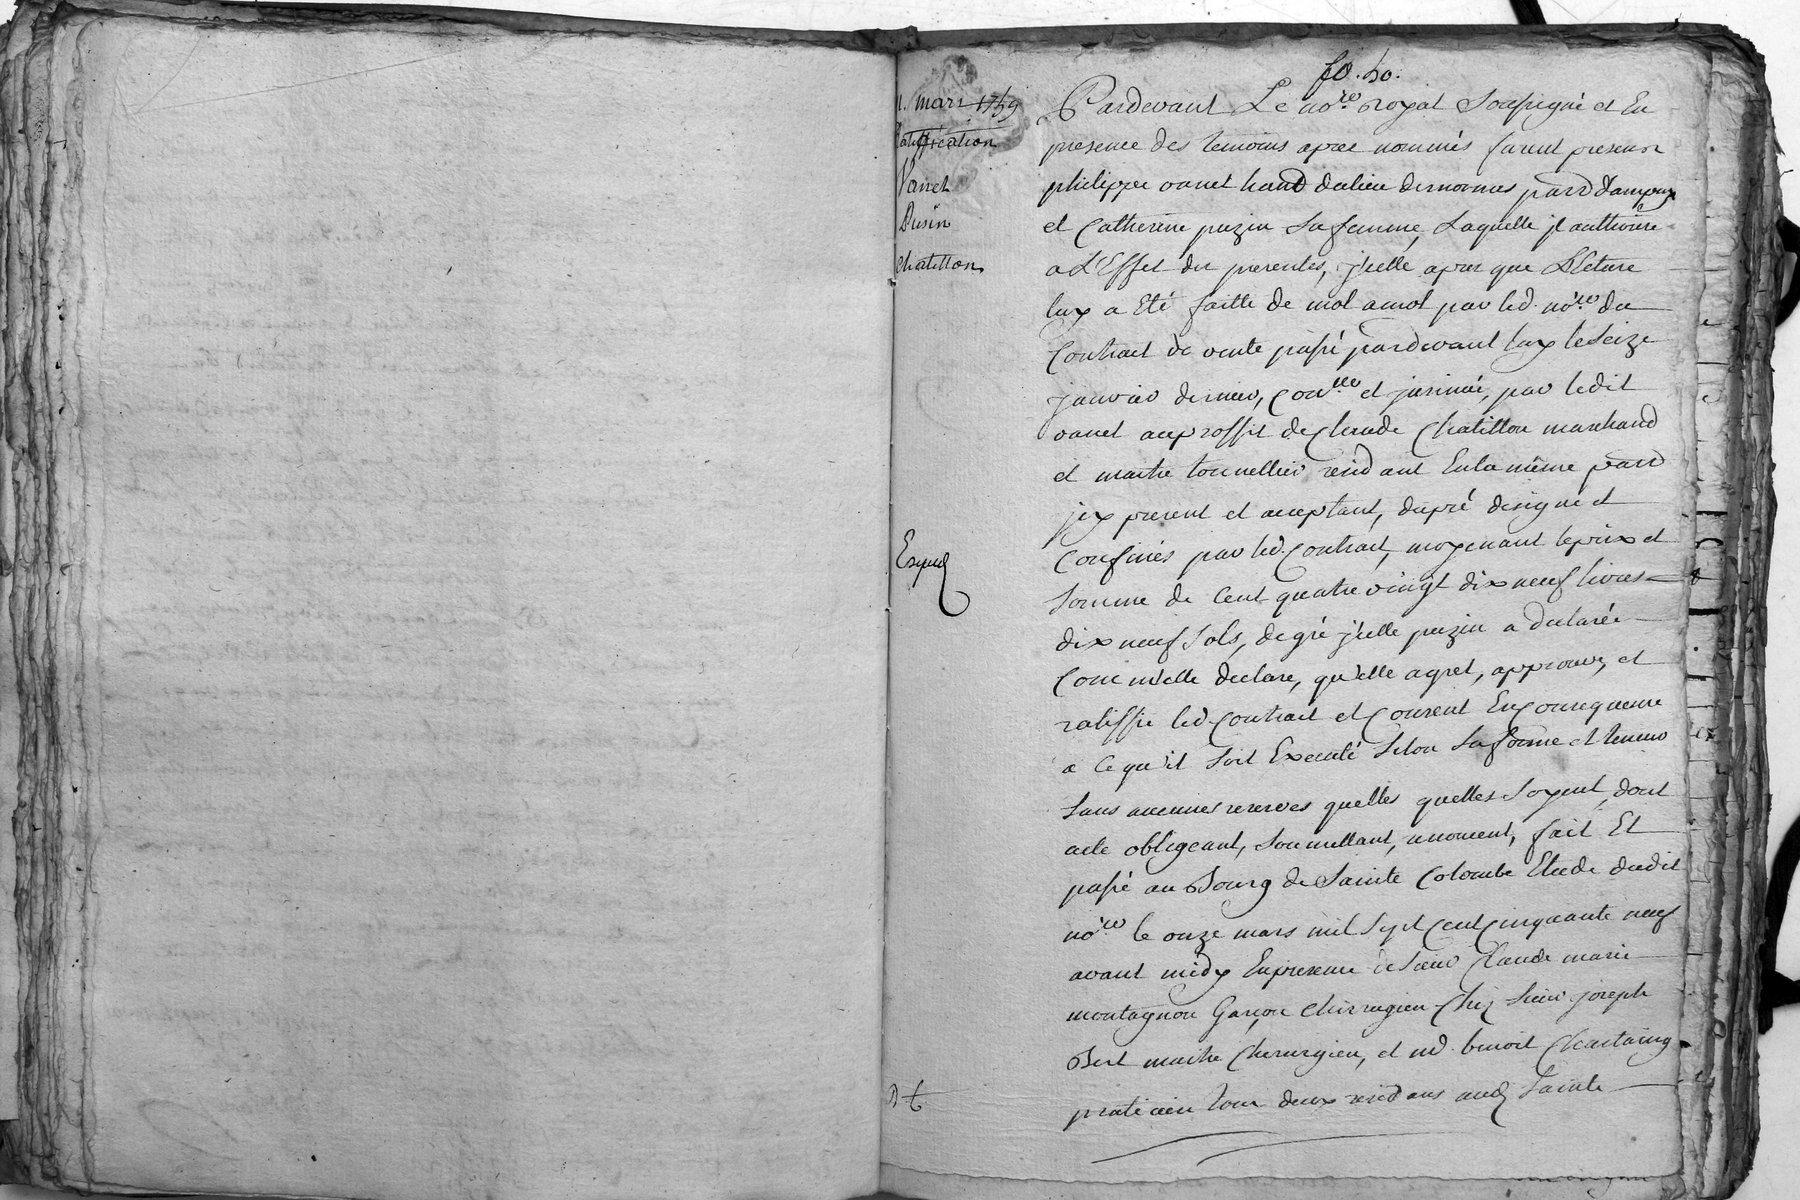 fo. 50.
mars 1759
Ratiffication
Vanet
Pusin
Chatillon
Expedé
Pardevant Le no.re Royal Soussigné et En
presence des temoins apres nommés furent presens
philippe vanet habitd du lieu de mornas parr d'ampuy
et Catherine puzin Sa femme, Laquelle jl authorise
a L'Effet des presentes, j'celle apres que Lecture
luy a Eté faitte de mot amot par led. no.re du
Contrat de vente passé pardevant luy le Seize
janvier dernier, Con.llé et jnsinué, par ledit
vanet auproffit de Claude Chatillon marchand
et maitre tonnellier residant En la même parr
jcy present et acceptant, du pré designé et
Confinés par led. Contrat, moyenant leprix et
Somme de Cent quatre vingt dix neuf livres
dix neuf Sols, de gré j'celle puzin a declarée
Comm'elle declare, qu'elle agret, approuve, et
ratiffie led. Contrat et Consent En Consequence
a ce qu'il Soit Executé Selon Sa forme et teneur
Sans aucunes reserves quelles quelles Soyent, dont
acte obligeant, Soumettant, renoncent, fait Et
passé au Bourg de Sainte Colombe Etude dudit
no.re le onze mars mil Sept Cent Cinquante neuf
avant midy Enpresence de Sieur Claude marie
montagnon Garçon Chirurgien Chez Sieur joseph
Bert maitre Chirurgien, et md. benoit Chastaing
praticien tous deux residans aud. Sainte